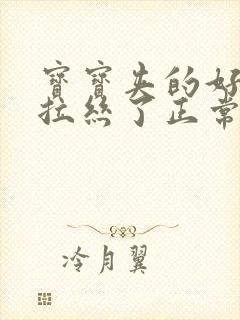 寶寶失的好
拉絲了正常
冷月翼